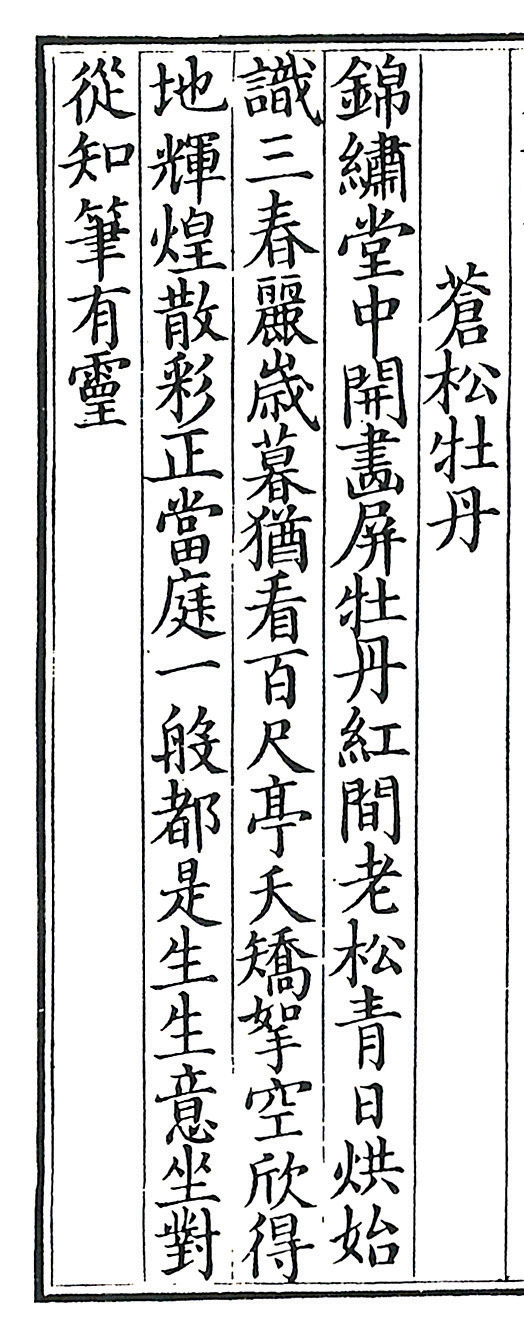 蒼松牡丹
錦繡堂中開畵屏牡丹紅間老松青日烘始
識三春麗歲暮猶看百尺亭夭矯拏空欣得
地輝煌散彩正當庭一般都是生生意坐對
從知筆有靈